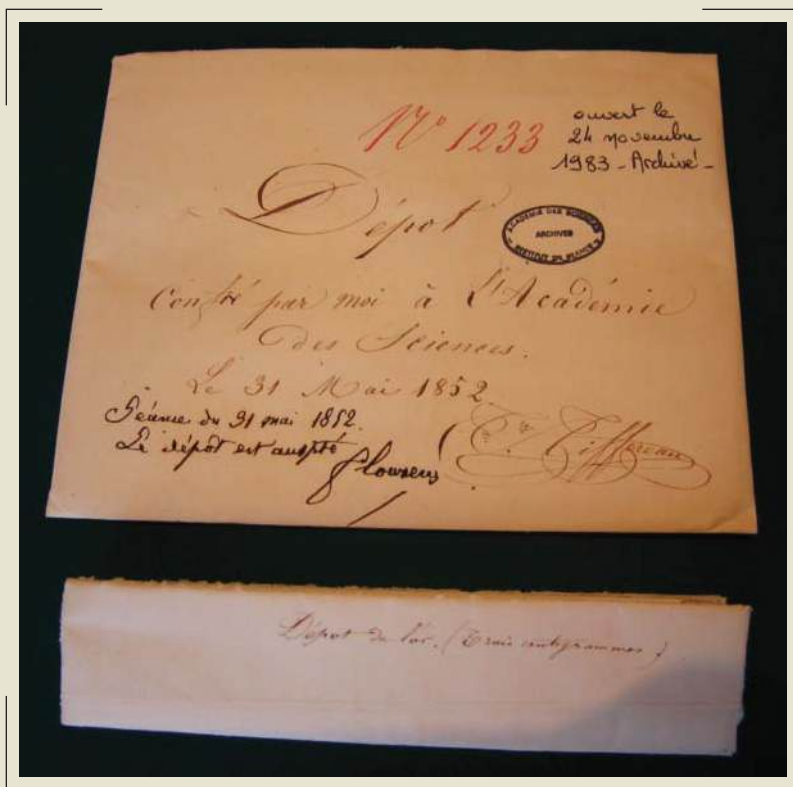 N° 1233
ouvert le
24 novembre
1983 - Archivé -
Dépot
ACADEMIE DES SCIENCES
ARCHIVES
INSTITUT DE FRANCE
Confié par moi à L'Académie
des Sciences.
Le 31 Mai 1852.
Séance du 31 mai 1852.
Le dépôt est accepté
Flourens
Tiffereau
Dépot de l'or. (Trois centigrammes)